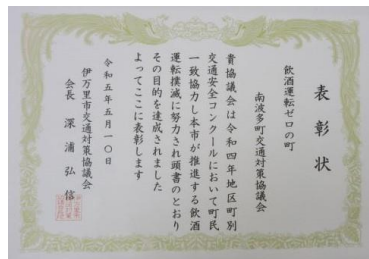 表彰状
飲酒運転ゼロの町
南波多町交通対策協議会
貴協議会は令和四年地区町別
交通安全コンクールにおいて町民
一致協力し本市が推進する飲酒
運転撲滅に努力され頭書のとおり
その目的を達成されました
よってここに表彰します
令和五年五月一〇日
伊万里市交通対策協議会
会長 深浦弘信